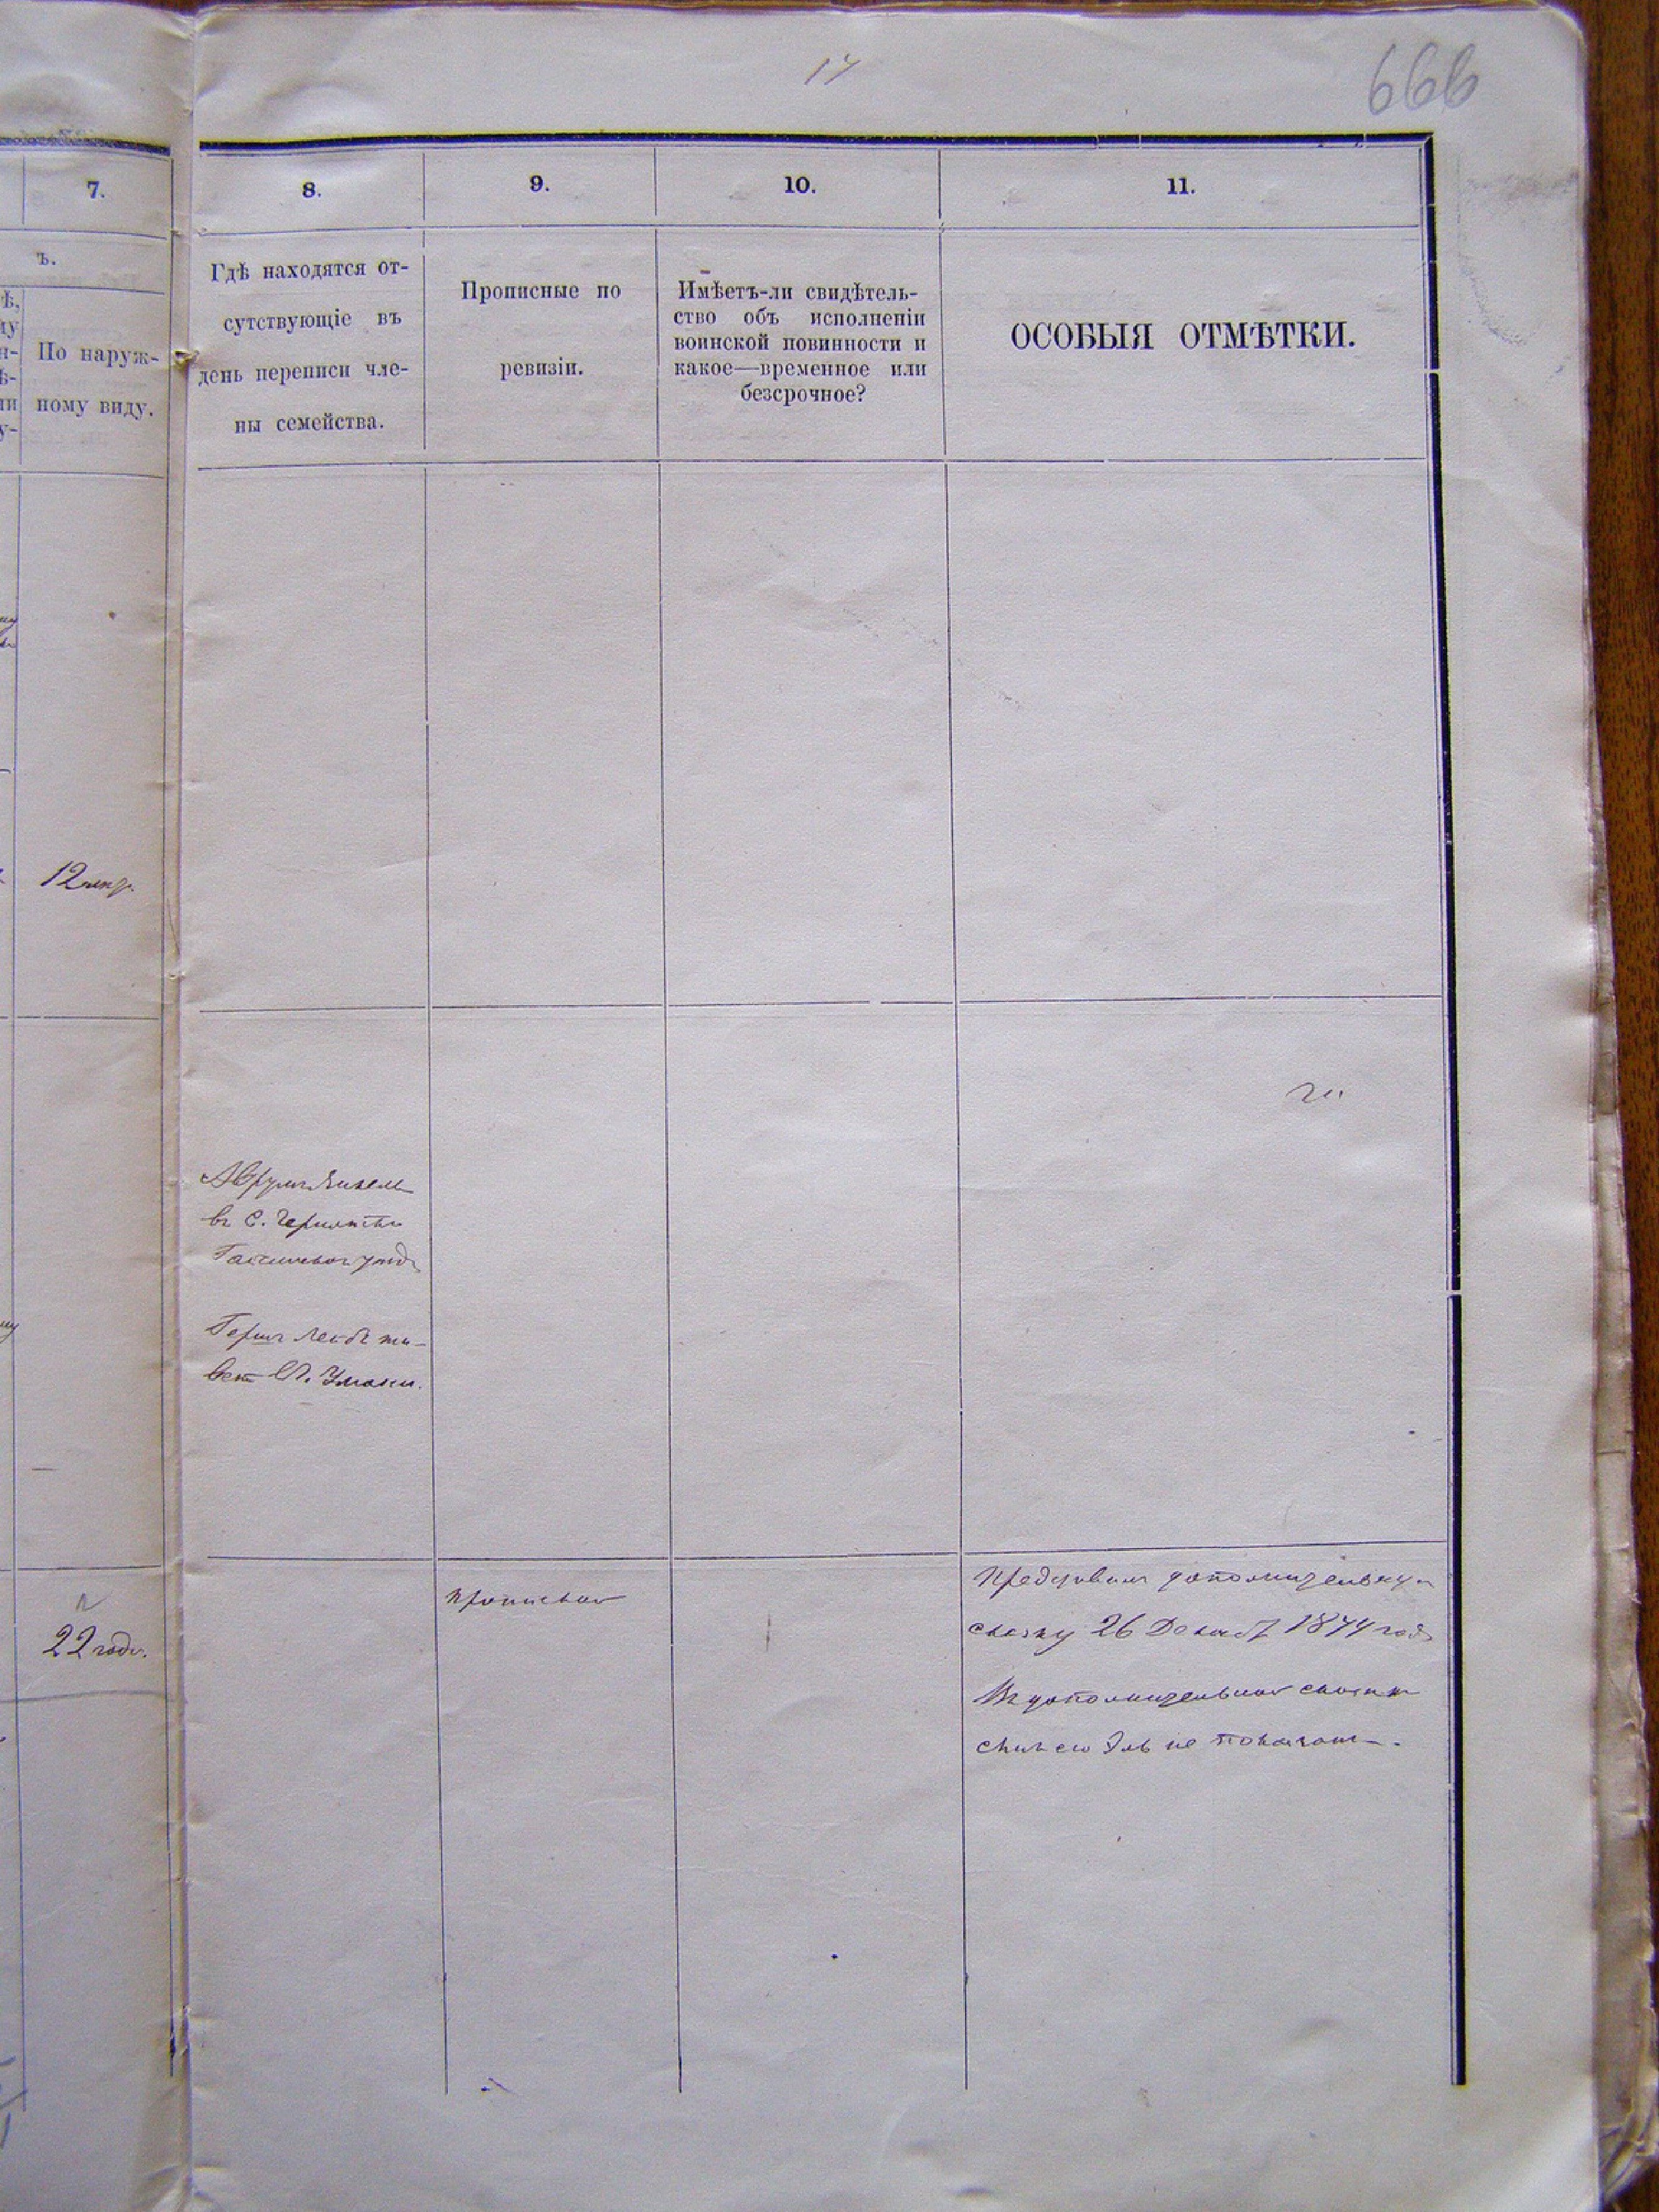 14
666
7.
8.
9.
10.
11.
ъ.
По наруж-
ному виду.
Гдѣ находятся от-
сутствующіе въ
день переписи чле-
ны семейства.
Прописные по
ревизіи.
Имѣетъ-ли свидѣтель-
ство объ исполненіи
воинской повинности и
какое—временное или
безсрочное?
ОСОБЫЯ ОТМѢТКИ.
12
Аврумъ Янкель
въ С.
Гершъ Лейбъ жи-
ветъ Умани.
22 года.
прописной
дополнительную
сказку 26 Декаб. 1874 года
Въ дополнительной сказке
сынъ его не показанъ.